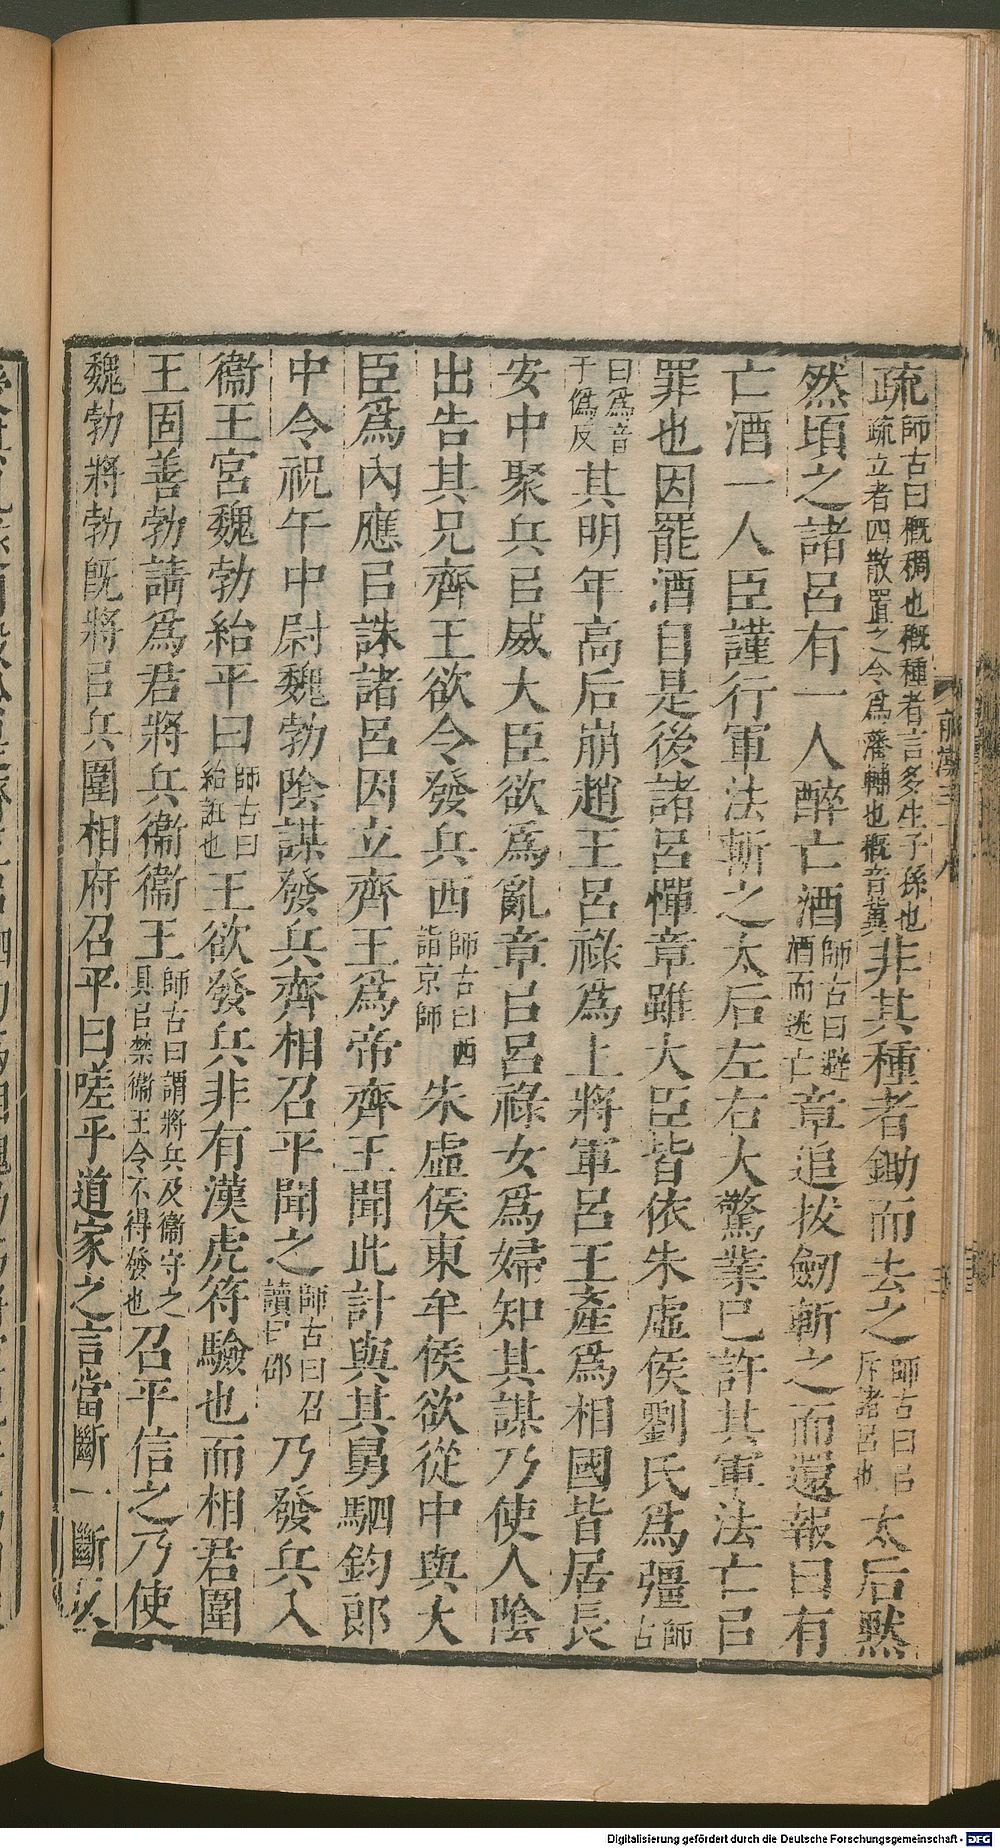 疏師古曰概稠也概種者言多生子孫也疏立者四散置之令為藩輔也概音冀非其種者鋤而去之師古曰㠯斥諸呂也太后黙
然頃之諸呂有一人醉亡酒師古曰避酒而逃亡章追拔劒斬之而還報曰有
亡酒一人臣謹行軍法斬之太后左右大驚業已許其軍法亡㠯
罪也因罷酒自是後諸呂憚章雖大臣皆依朱虛侯劉氏爲彊師古
曰爲音于僞反其明年高后崩趙王呂祿爲上將軍呂王產爲相國皆居長
安中聚兵㠯威大臣欲爲亂章㠯呂祿女爲婦知其謀乃使人陰
出告其兄齊王欲令發兵西師古曰西詣京師朱虛侯東牟侯欲從中與大
臣爲內應㠯誅諸呂因立齊王爲帝齊王聞此計與其舅駟鈞郎
中令祝午中尉魏勃陰謀發兵齊相召平聞之師古曰召讀曰邵乃發兵入
衞王宮魏勃紿平曰師古曰紿誑也王欲發兵非有漢虎符驗也而相君圍
王固善勃請爲君將兵衞衞王師古曰謂將兵及衞守之具㠯禁衞王令不得發也召平信之乃使
魏勃將勃旣將㠯兵圍相府召平曰嗟乎道家之言當斷不斷反
前漢三十八